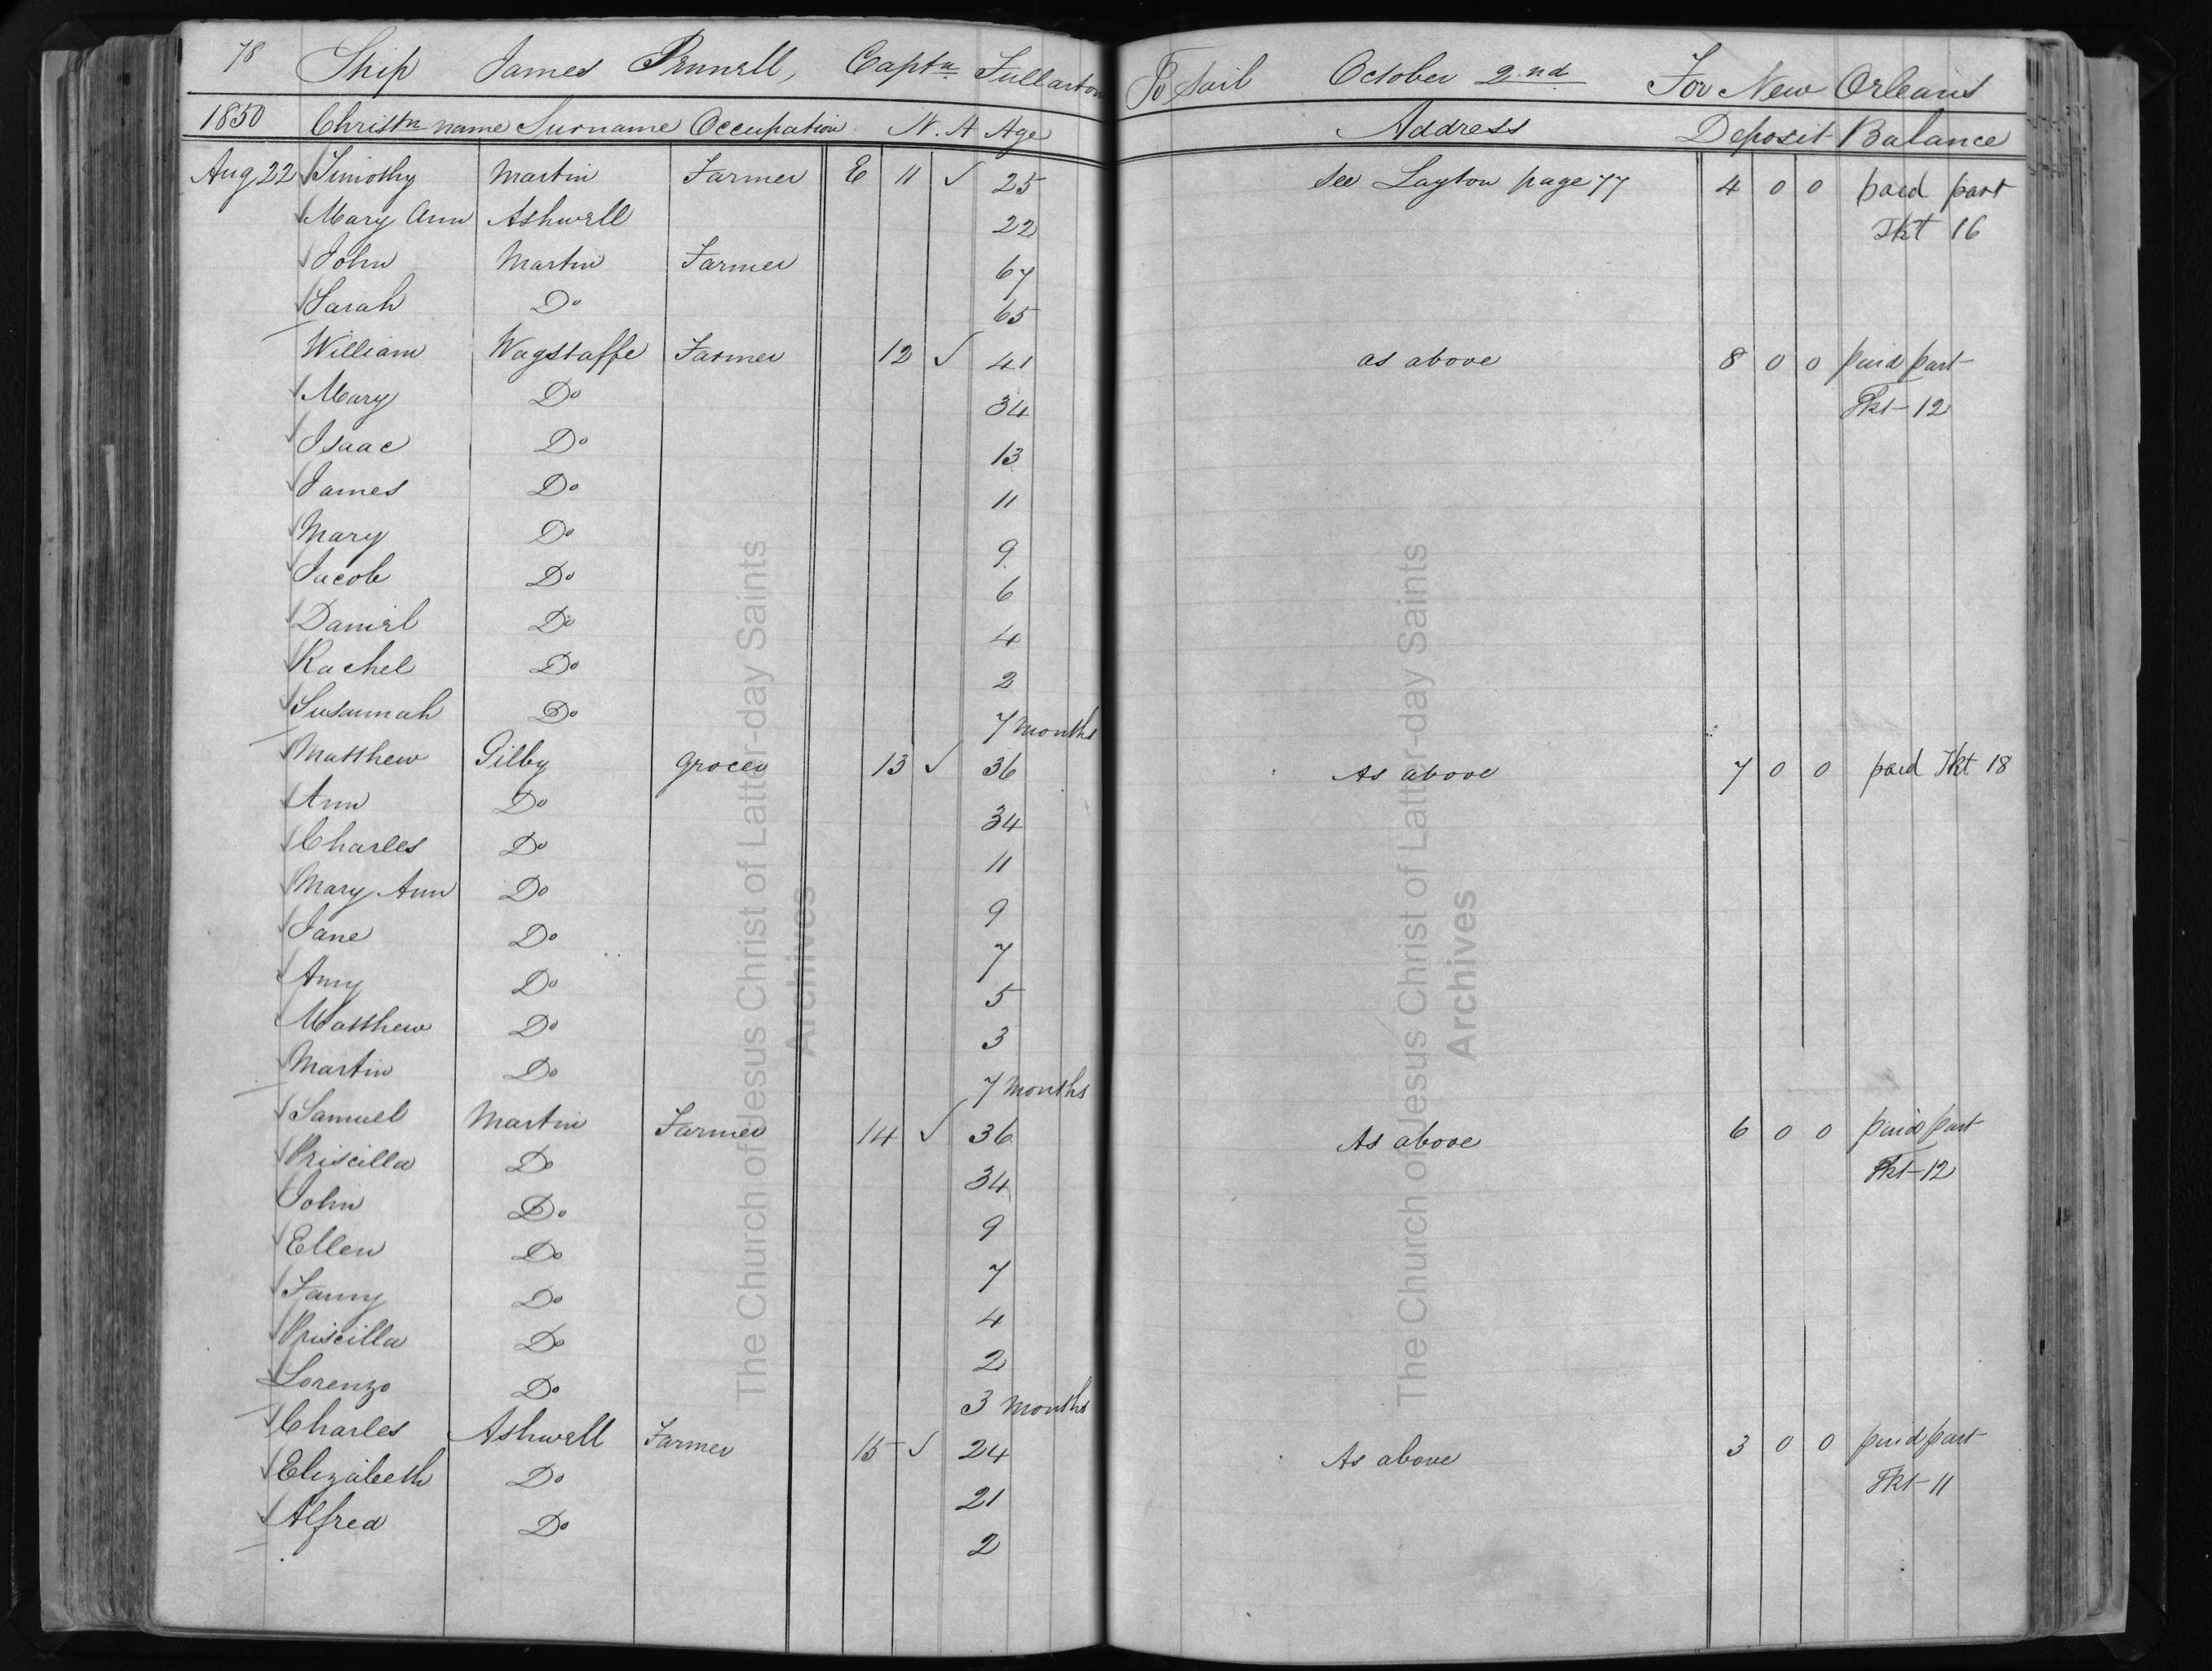 78 Ship James Pennell, Captn Fullarton To Sail October 2nd For New Orleans
1850 Christn name Surname Occupation N. A Age Address Deposit Balance
Aug 22 Timothy Martin Farmer E 11 ✓ 25 See Layton page 77 4 0 0 paid part
Mary Ann Ashwell 22 Tkt 16
John Martin Farmer 67
Sarah Do 65
William Wagstaffe Farmer 12 ✓ 41 as above 8 0 0 paid part
Mary Do 34 Tkt 12
Isaac Do 13
James Do 11
Mary Do 9
Jacob Do 6
Daniel Do 4
Rachel Do 2
Susannah Do 7 months
Matthew Gilby Grocer 13 ✓ 36 As above 7 0 0 paid Tkt 18
Ann Do 34
Charles Do 11
Mary Ann Do 9
Jane Do 7
Amy Do 5
Matthew Do 3
Martin Do 7 months
Samuel Martin Farmer 14 ✓ 36 As above 6 0 0 paid part
Priscilla Do 34 Tkt 12
John Do 9
Ellen Do 7
Fanny Do 4
Priscilla Do 2
Lorenzo Do 3 months
Charles Ashwell Farmer 15 ✓ 24 As above 3 0 0 paid part
Elizabeth Do 21 Tkt 11
Alfred Do 2
The Church of Jesus Christ of Latter-day Saints
Archives
The Church of Jesus Christ of Latter-day Saints
Archives